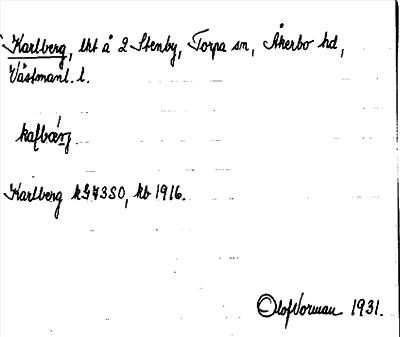 Karlberg, lht å 2 Stenby, Torpa sn, Åkerbo hd,
Västmanl. l.
kafbœrj
Karlberg hG73SO, kb 1916.
Olof Norman 1931.